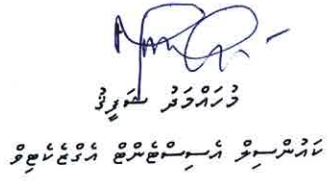 މުޙައްމަދު ޝަފީޤު
ކައުންސިލް އެސިސްޓެންޓް އެގްޒެކެޓިވް